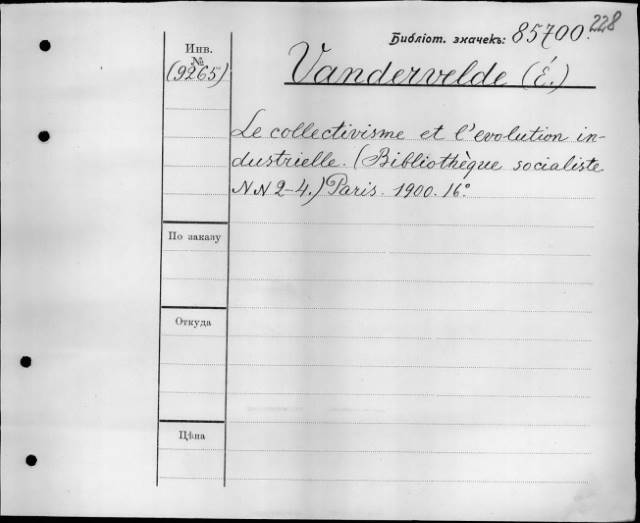 228
Библіот. значекъ: 85700.
Инв.
№
(9265)
Vandervelde (É.)
Le collectivisme et l'evolution in-
dustrielle. (Bibliothèque socialiste
NN 2-4.) Paris. 1900. 16°.
По заказу
Откуда
Цѣна